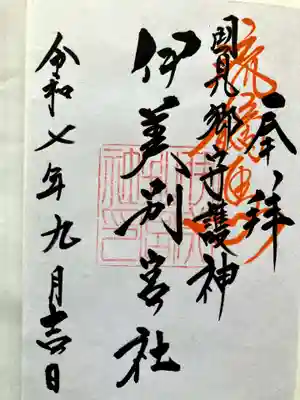 奉拝
國見郷守護神
伊美別宮社
令和七年九月吉日